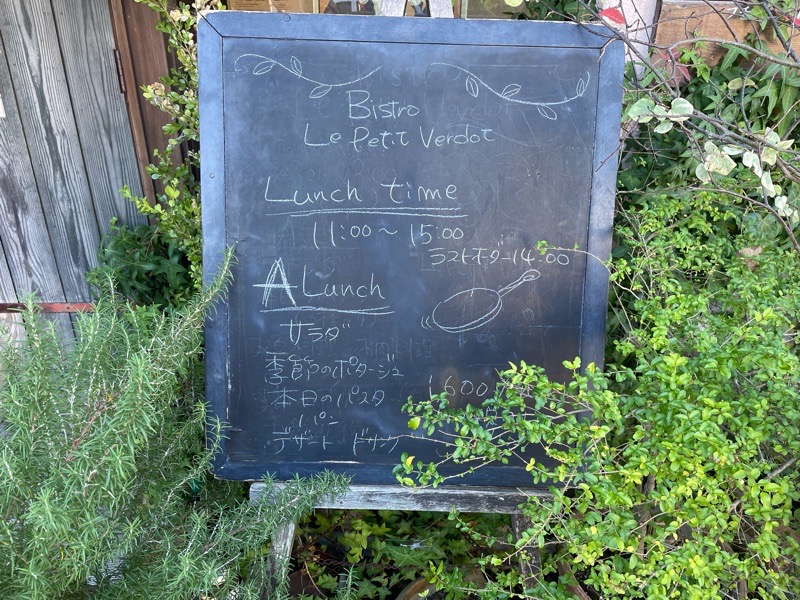 Bistro
Le Petit Verdot
Lunch time
11:00～15:00
ラストオーダー14:00
A Lunch
サラダ
季節のポタージュ
本日のパスタ
1600
パン
デザート ドリンク